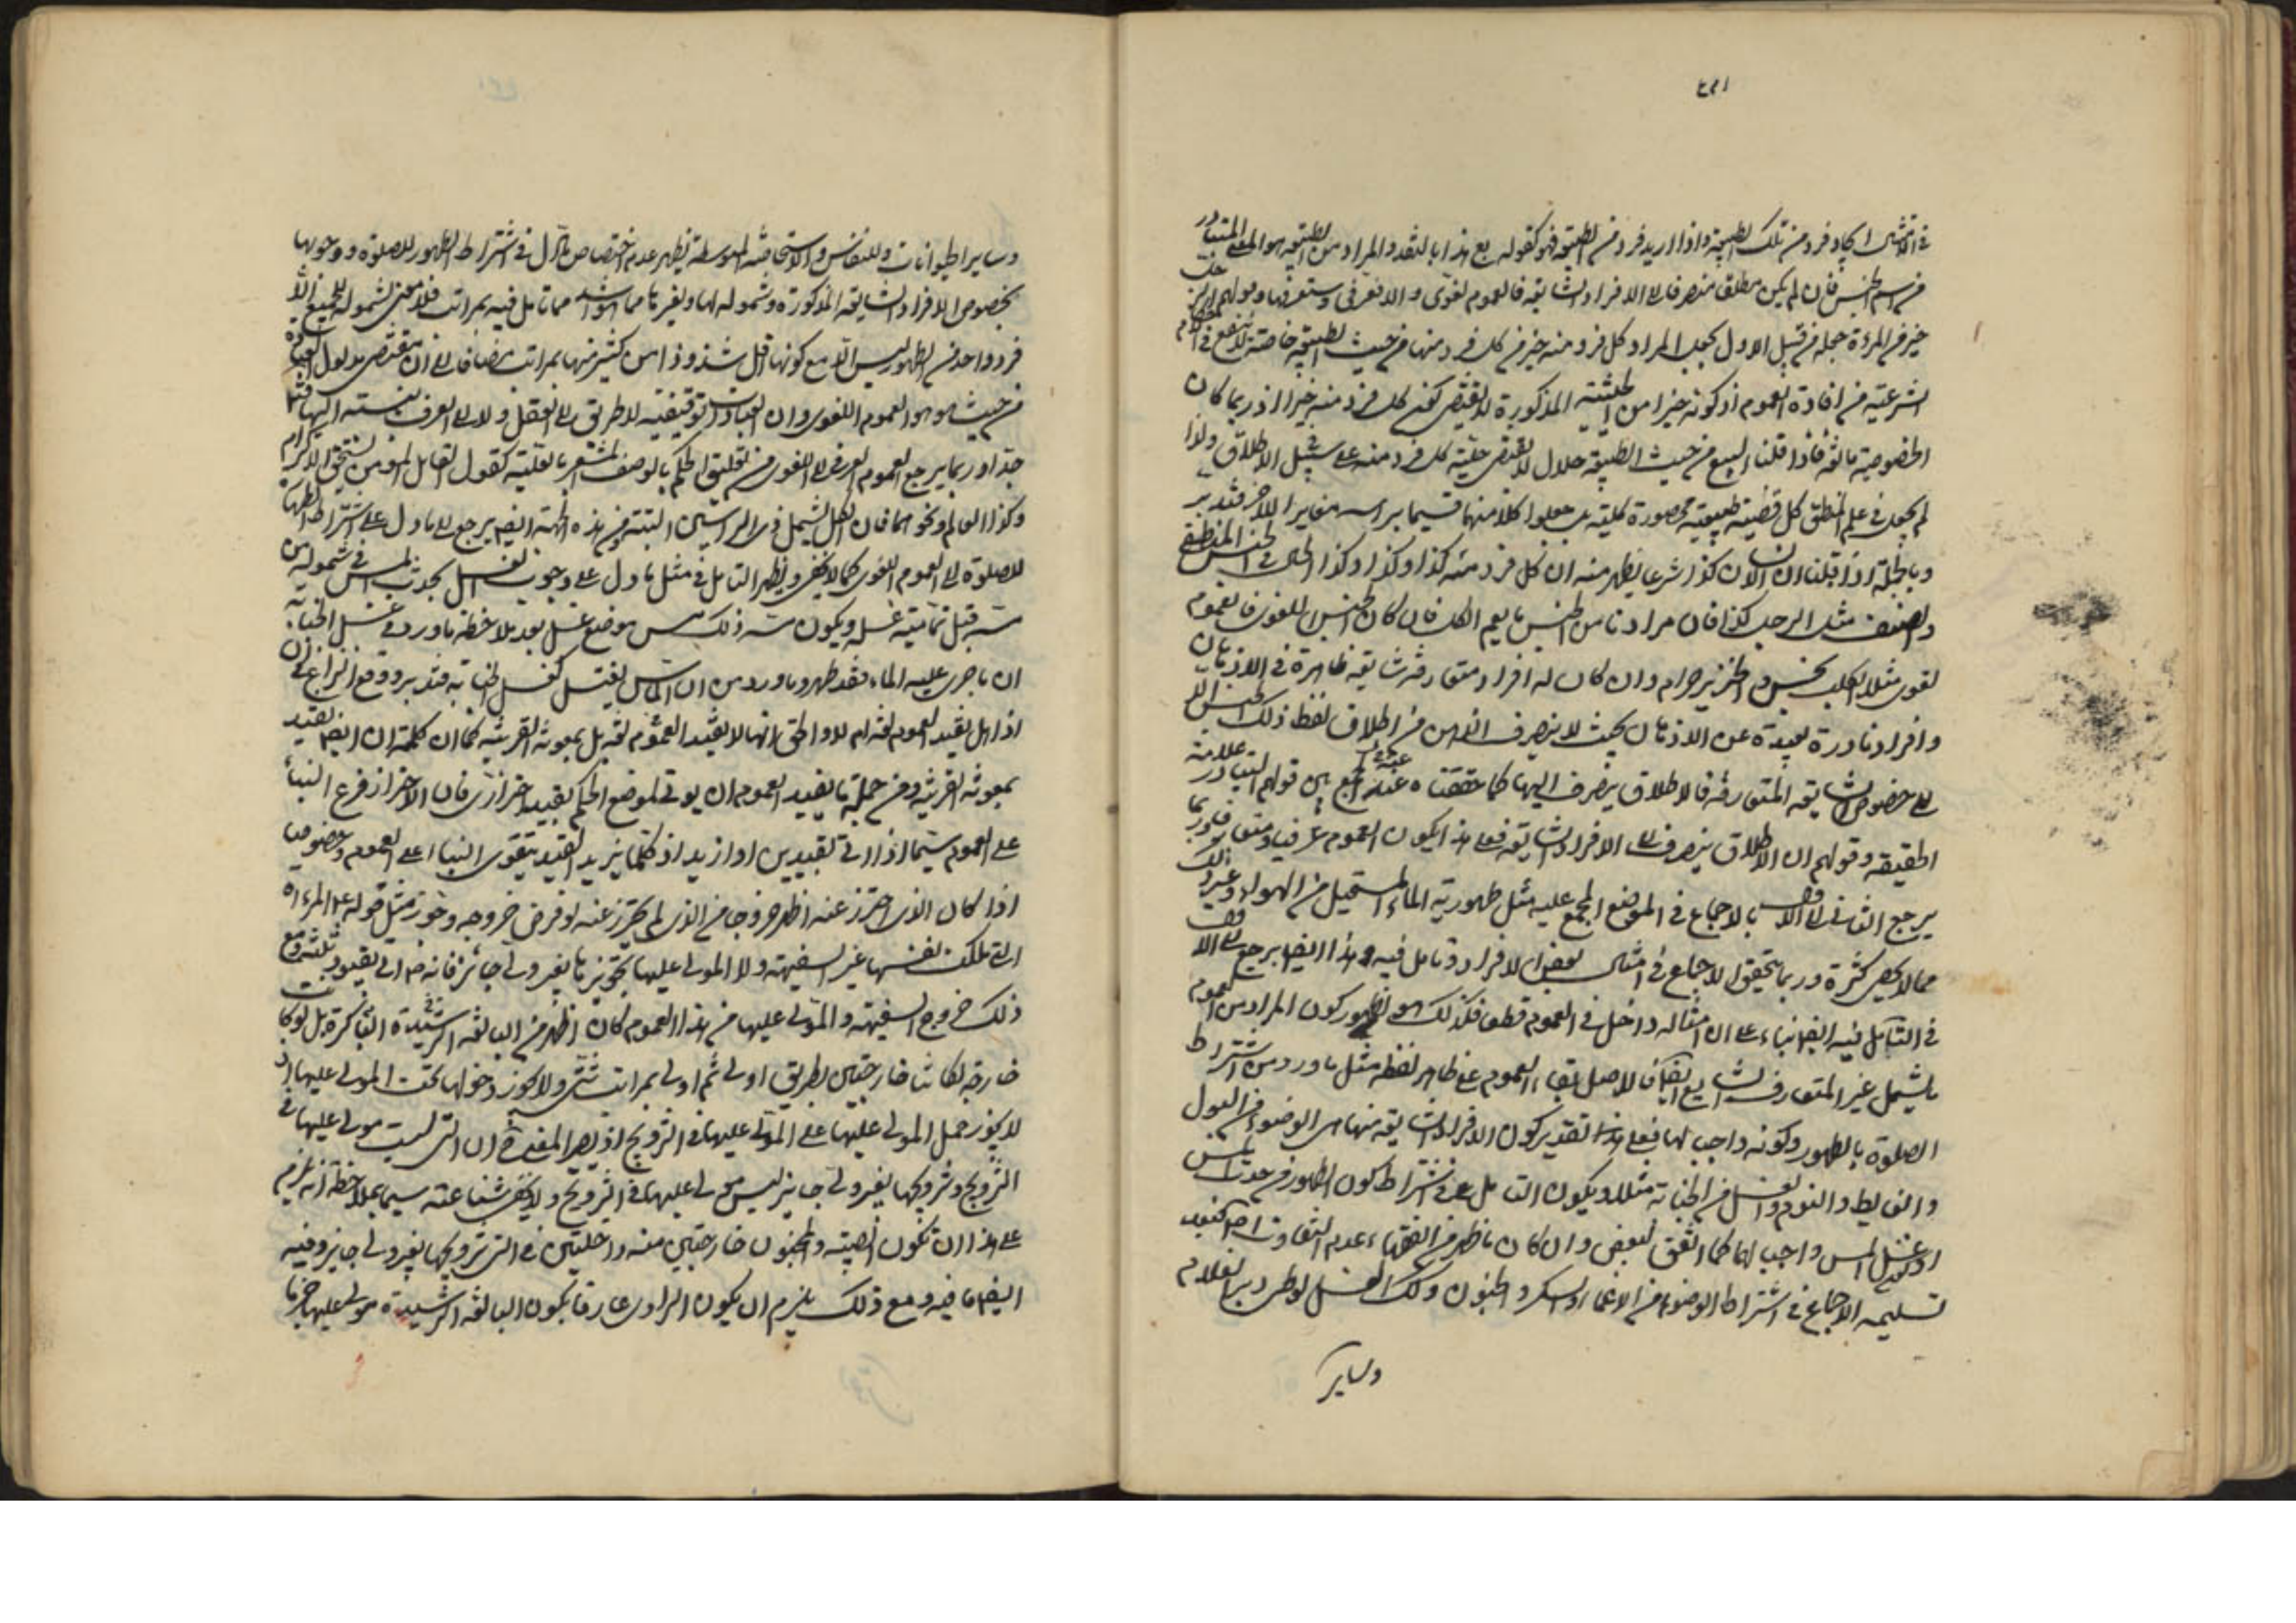 في الامتثال ايجاد فرد من تلك الطبيعة واذا اريد فرد من الطبيعة فهو كقوله بع هذا بالنقد والمراد من الطبيعة هو المعنى المتبادر
من اسم الجنس فان لم يكن مطلق منصرفا الى الافراد الشايعة فالعموم لغوى والا فعرفى وستعرفها وقولهم الرجل
خير من المرءة جعله من قبيل الاول بجعل المراد كل فرد منه خير من كل فرد منها من حيث الطبيعة خاصة لا ينفع في
الشرعية من افادة العموم اذ كونه خيرا من الحيثية المذكورة لا يقتضى كون كل فرد منه خيرا اذ ربما كان
الخصوصية مانعة فاذا قلنا البيع من حيث الطبيعة حلال لا يقتضى حلية كل فرد منه على سبيل الاطلاق ولذا
لم يجعل في علم المنطق كل قضية طبيعية محصورة كلية بل جعلوا كلا منهما قسيما براسه مغايرا للاخر فتدبر
وبالجملة اذا قلنا ان الانسان كذا شرعا يظهر منه ان كل فرد منه كذا وكذا وكذا الحال في الجنس المنطقى
والصنف مثل الرجل كذا فان مرادنا من الجنس ما يعم الكل فان كان الجنس اللغوى فالعموم
لغوى مثلا الكلب نجس والخنزير حرام وان كان له افراد متعارفة شايعة ظاهرة في الاذهان
وافراد نادرة بعيدة عن الاذهان بحيث لا ينصرف الذهن من اطلاق لفظ ذلك الجنس الا
الى خصوص الشايعة المتعارفة فالاطلاق ينصرف اليها كما حققناه عند الجمع بين قولهم التبادر علامة
الحقيقة وقولهم ان الاطلاق ينصرف الى الافراد الشايعة فعلى هذا يكون العموم عرفيا ومتعارفا وربما
يرجع الثانى الى الاول بالاجماع في الموضع المجمع عليه مثل طهورية الماء المستحيل من الهواء وغير ذلك
مما لا يحصى كثرة وربما يتحقق الاجماع في امثال بعض الافراد وتامل فيه وهذا ايضا يرجع الى
في التامل فيه ايضا بناء على ان امثاله داخل في العموم قطعا فكذلك هو لظهور كون المراد من العموم
ما يشمل غير المتعارف الشايع ايضا فالاصل بقاء العموم على ظاهر لفظه مثل ما ورد من اشتراط
الصلوة بالطهور وكونه واجبا لها فعلى هذا تقدير كون الافراد الشايعة منها هى الوضوء من البول
والغايط والنوم والغسل من الجنابة مثلا ويكون التامل في اشتراط كون الطهور من حدث المس
او غسل المس واجب لها كما اتفق لبعض وان كان ما ظهر من الفقهاء عدم التفاوت
تسليمه الاجماع في اشتراط الوضوء من الاغماء والسكر والجنون وكذلك الغسل لوطى دبر الغلام
وساير
وساير الحيوانات وللنفاس والاستحاضة المتوسطة يظهر عدم اختصاص ما دل في اشتراط الطهور للصلوة ووجوبها
بخصوص الافراد الشايعة المذكورة وشموله لها ولغيرها مما هو اشد مما تامل فيه بمراتب فلا معنى لشموله للجميع الا
فرد واحد من الطهور ليس الا مع كونها اقل شذوذا من كثير منها بمراتب مضافا الى ان مقتضى مدلول العبارة
من حيث هو هو العموم اللغوى وان العبادات توقيفية لا طريق الى العقل ولا الى العرف بالنسبة اليها فتامل
جدا وربما يرجع العموم العرفى الى اللغوى من تعليق الحكم بالوصف المشعر بالعلية كقول القايل المؤمن يستحق الاكرام
وكذا العالم ونحوهما فان الكل يشمل ذى الراسين البتة ومن هذه الجهة ايضا يرجع الى ما دل على اشتراط الطهارة
للصلوة الى العموم اللغوى كما لا يخفى ويظهر التامل في مثل ما دل على وجوب الغسل بحدث المس في شموله لمن
مسه قبل تمامية غسله ويكون مسه ذلك مس موضع غسل بعد ملاحظة ما ورد في غسل الجنابة
ان ما جرى عليه الماء فقد طهر وما ورد من ان الماس يغتسل كغسل الجنابة فتدبر ووقع النزاع في ان
اذا هل يفيد العموم لغة ام لا والحق انها لا يفيد العموم لغة بل بمعونة القرينة كما ان كلمة ان ايضا يفيد
بمعونة القرينة ومن جملة ما يفيد العموم ان يؤتى لموضع الحكم بقيد احترازى فان الاحتراز فرع البناء
على العموم سيما اذا اتى بقيدين او ازيد اذ كلما يزيد القيد يتقوى البناء على العموم وخصوصا
اذا كان الذى احترز عنه اظهر خروجا من الذى لم يحترز عنه لو فرض خروجه وخورت مثل قوله ع المراة
التى ملكت نفسها غير السفيهة ولا المولى عليها تجويزها بغير ولى جائز فانه ع اتى بقيود ثلثة ومع
ذلك خروج السفيهة والمولى عليها من هذا العموم كان اظهر من البالغة الرشيدة الباكرة بل لو كانت
خارجة لكانتا خارجتين بطريق اولى ثم اولى بمراتب شتى ولا يجوز دخولها تحت المولى عليها اذ
لا يجوز حمل المولى عليها على المولى عليها في التزويج اذ يصير المعنى ح ان التى ليست مولى عليها في
التزويج وتزويجها بغير ولى جايز ليس مولى عليها في التزويج ولا يخفى شناعته سيما بملاحظة انه يلزم
على هذا ان تكون الصبية والمجنون خارجتين منه داخلتين في التى تزويجها بغير ولى جايز وفيه
ايضا ما فيه ومع ذلك يلزم ان يكون الراوى عارفا بكون البالغة الرشيدة مولى عليها جزما